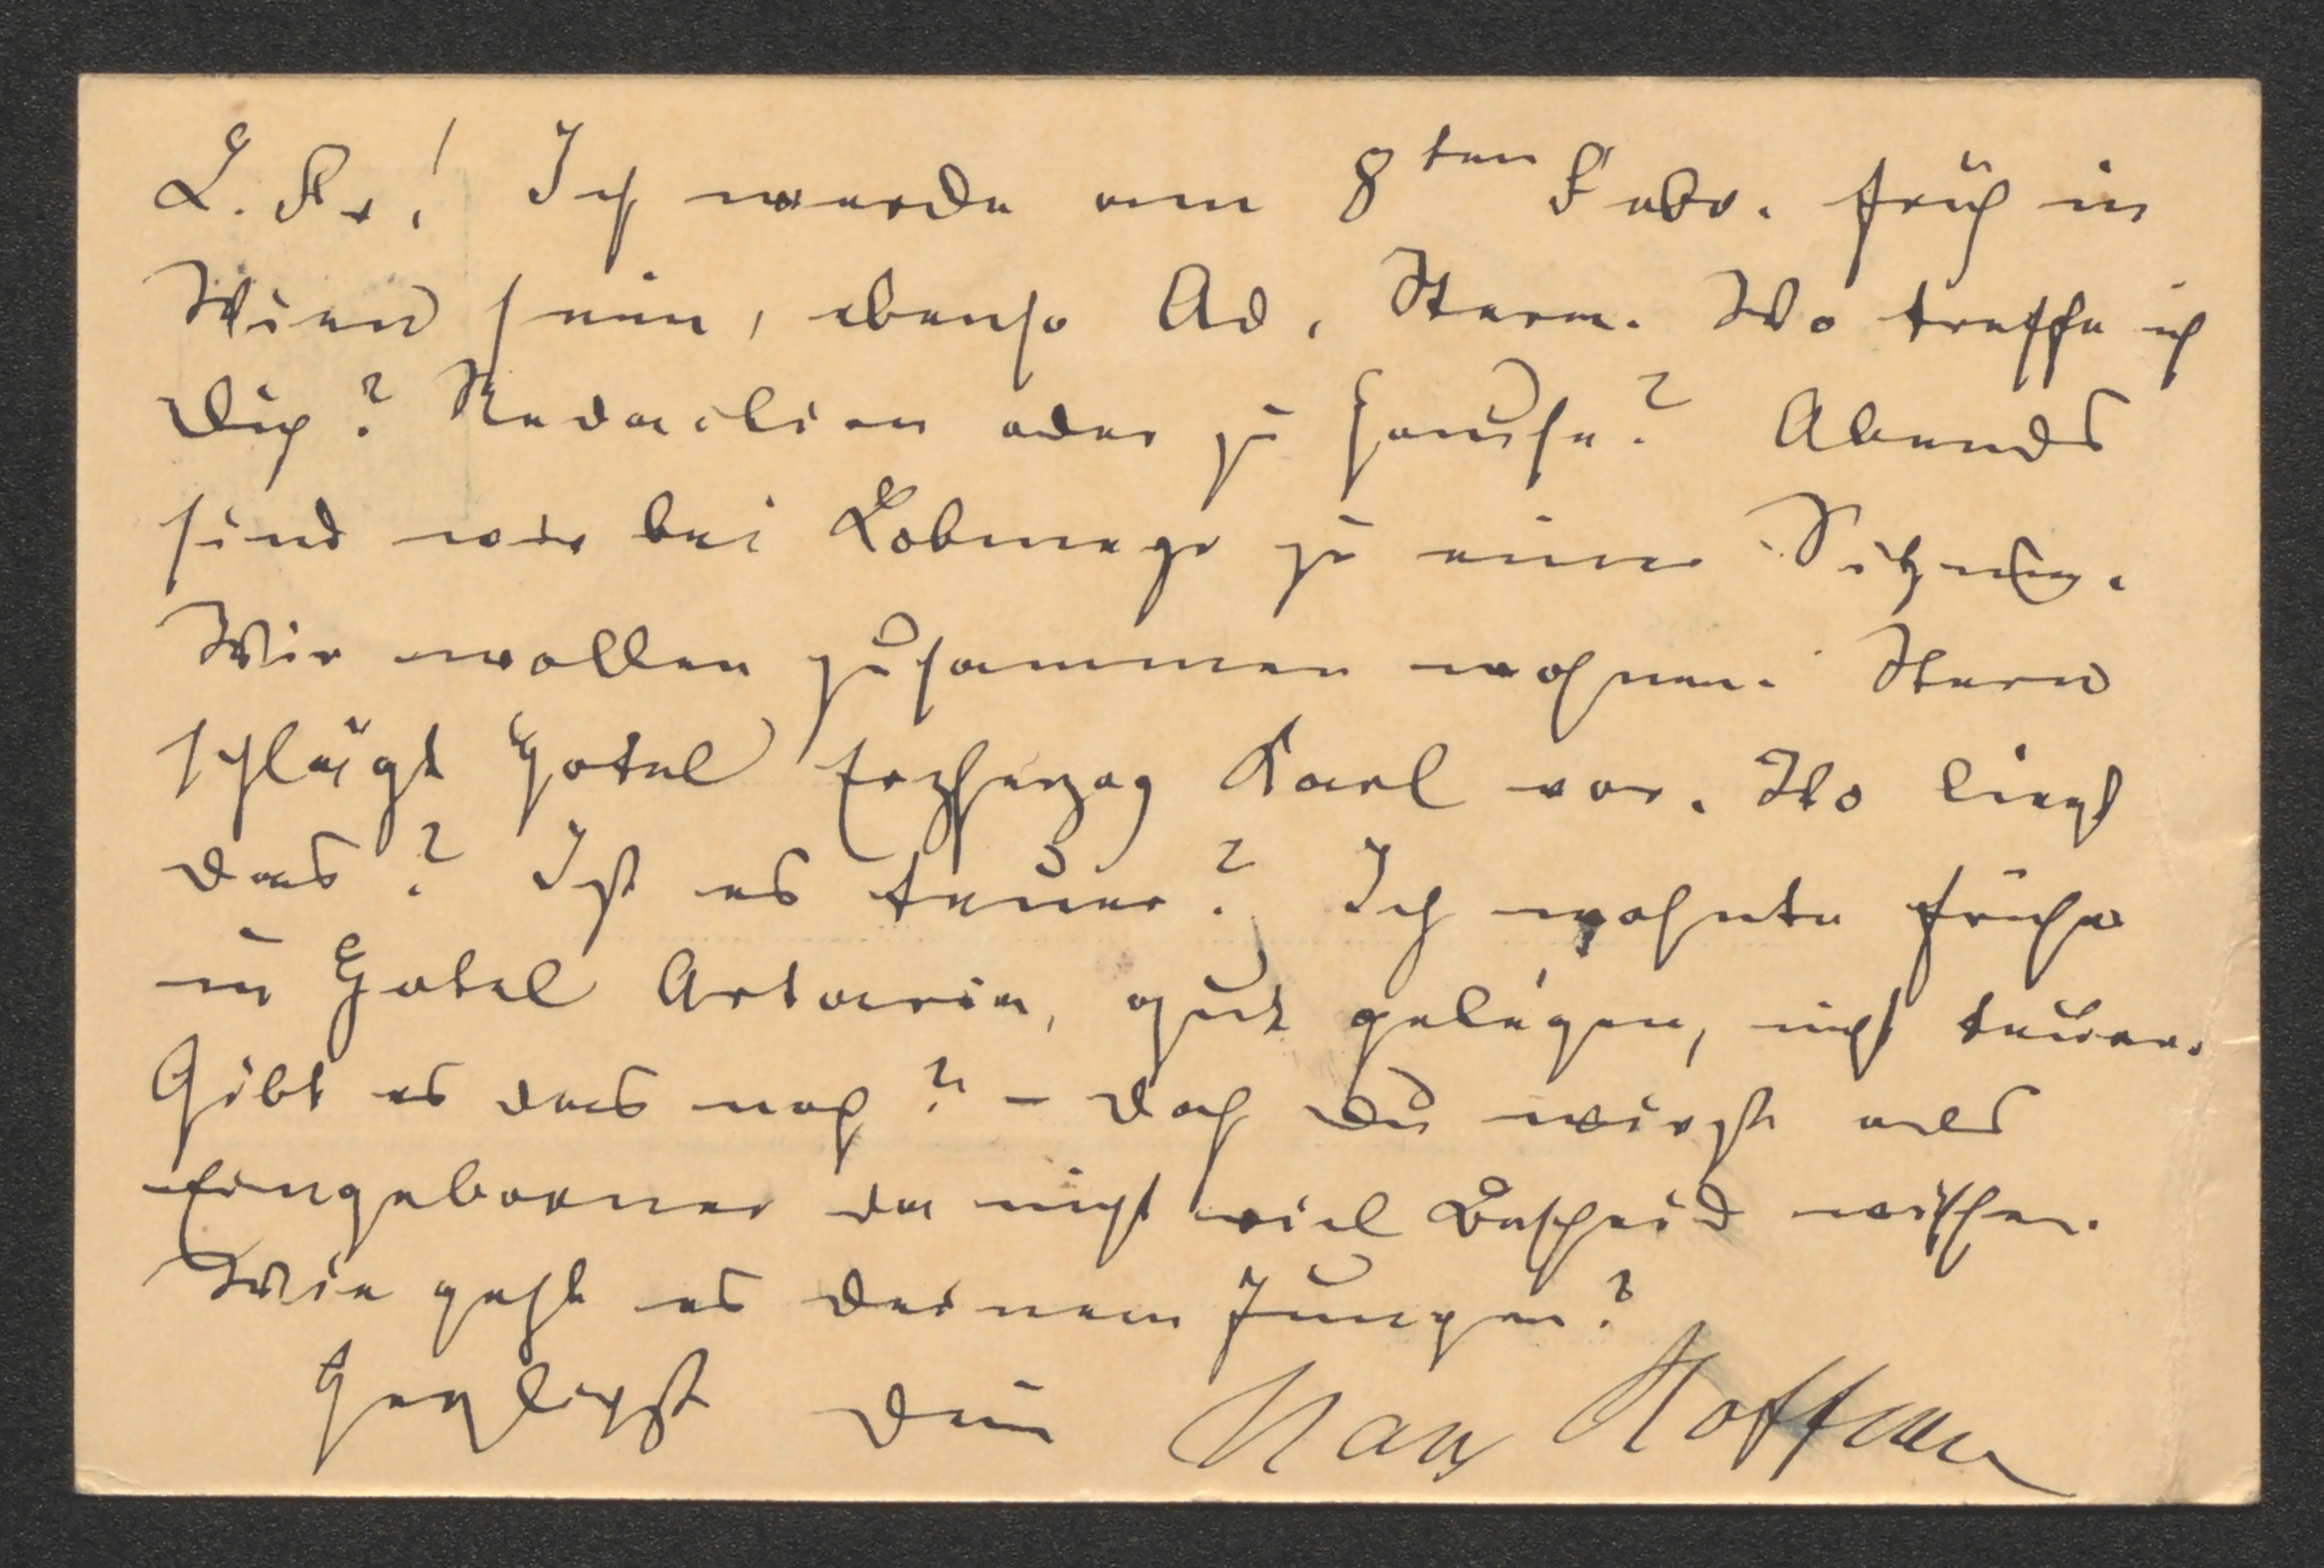 L. Fr.! Ich werde am 8ten Febr. früh in
Wien sein, ebenso Ad. Stern. Wo treffe ich
Dich? Redaction oder zu Hause? Abends
sind wir bei Lobmeyr zu einer Sitzung.
Wir wollen zusammen wohnen. Stern
schlägt Hotel Erzherzog Karl vor. Wo liegt
das? Ist es teuer? Ich wohnte früher
in Hotel Artaria, gut gelegen, nicht teuer.
Gibt es das noch? – Doch Du wirst als
Eingeborner da nicht viel Bescheid wissen.
Wie geht es deinem Jungen?
Herzlichst Dein Hans Hoffmann